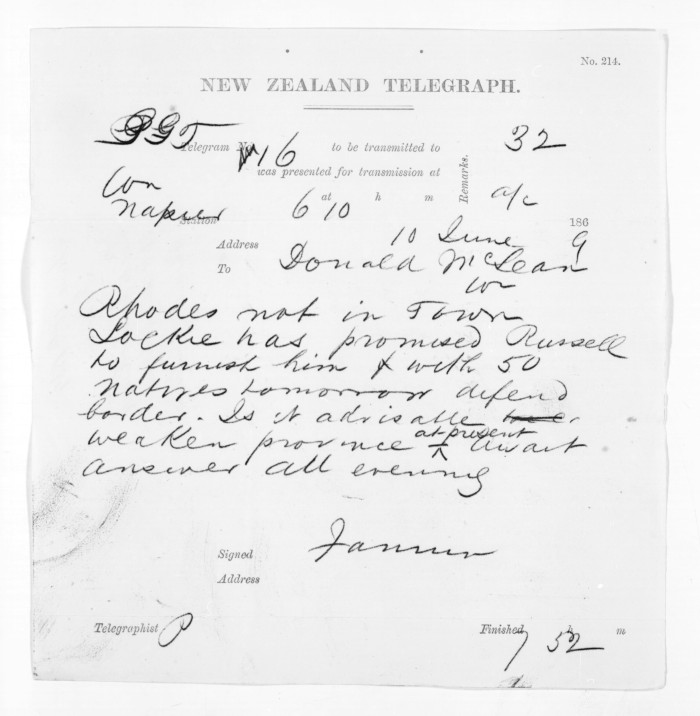 No. 214.
NEW ZEALAND TELEGRAPH.
Telegram No. 16 to be transmitted to 32
Wn was presented for transmission at Remarks.
Napier Station 6 at 10 h m a/c
10 June 1869
Address
To Donald McLean
Wn
Rhodes not in Town
Lockie has promised Russell
to furnish him & with 50
natives tomorrow defend
border. Is it advisable
weaken province at present await
answer all evening
Signed
Address
Telegraphist P Finished 7 h 52 m